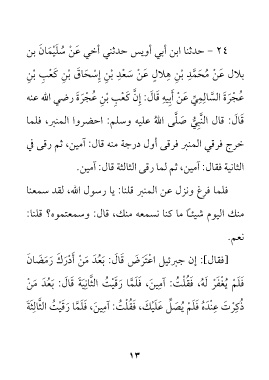 ٢٤ - حدثنا ابن أبي أويس حدثني أخي عَنْ سُلَيْمَانَ بن
بلال عَنْ مُحَمَّدِ بْنِ هِلالٍ عَنْ سَعْدِ بْنِ إِسْحَاقَ بْنِ كَعْبِ بْنِ
عُجْرَةَ السَّالِمِيِّ عَنْ أَبِيهِ قَالَ: إِنَّ كَعْبَ بْنَ عُجْرَةَ رضي الله عنه
قَالَ: قال النَّبِيُّ صَلَّى اللهُ عليه وسلم: احضروا المنبر، فلما
خرج فرقي المنبر فرقى أول درجة منه قال: آمين، ثم رقى في
الثانية فقال: آمين، ثم لما رقى الثالثة قال: آمين.
فلما فرغ ونزل عن المنبر قلنا: يا رسول الله، لقد سمعنا
منك اليوم شيئًا ما كنا نسمعه منك، قال: وسمعتموه؟ قلنا:
نعم.
[فقال]: إن جبرئيل اعْتَرَضَ قَالَ: بَعُدَ مَنْ أَدْرَكَ رَمَضَانَ
فَلَمْ يُغْفَرْ لَهُ، فَقُلْتُ: آمِينَ، فَلَمَّا رَقَيْتُ الثَّانِيَةَ قَالَ: بَعُدَ مَنْ
ذُكِرْتَ عِنْدَهُ فَلَمْ يُصَلِّ عَلَيْكَ، فَقُلْتُ: آمِينَ، فَلَمَّا رَقَيْتُ الثَّالِثَةَ
١٣